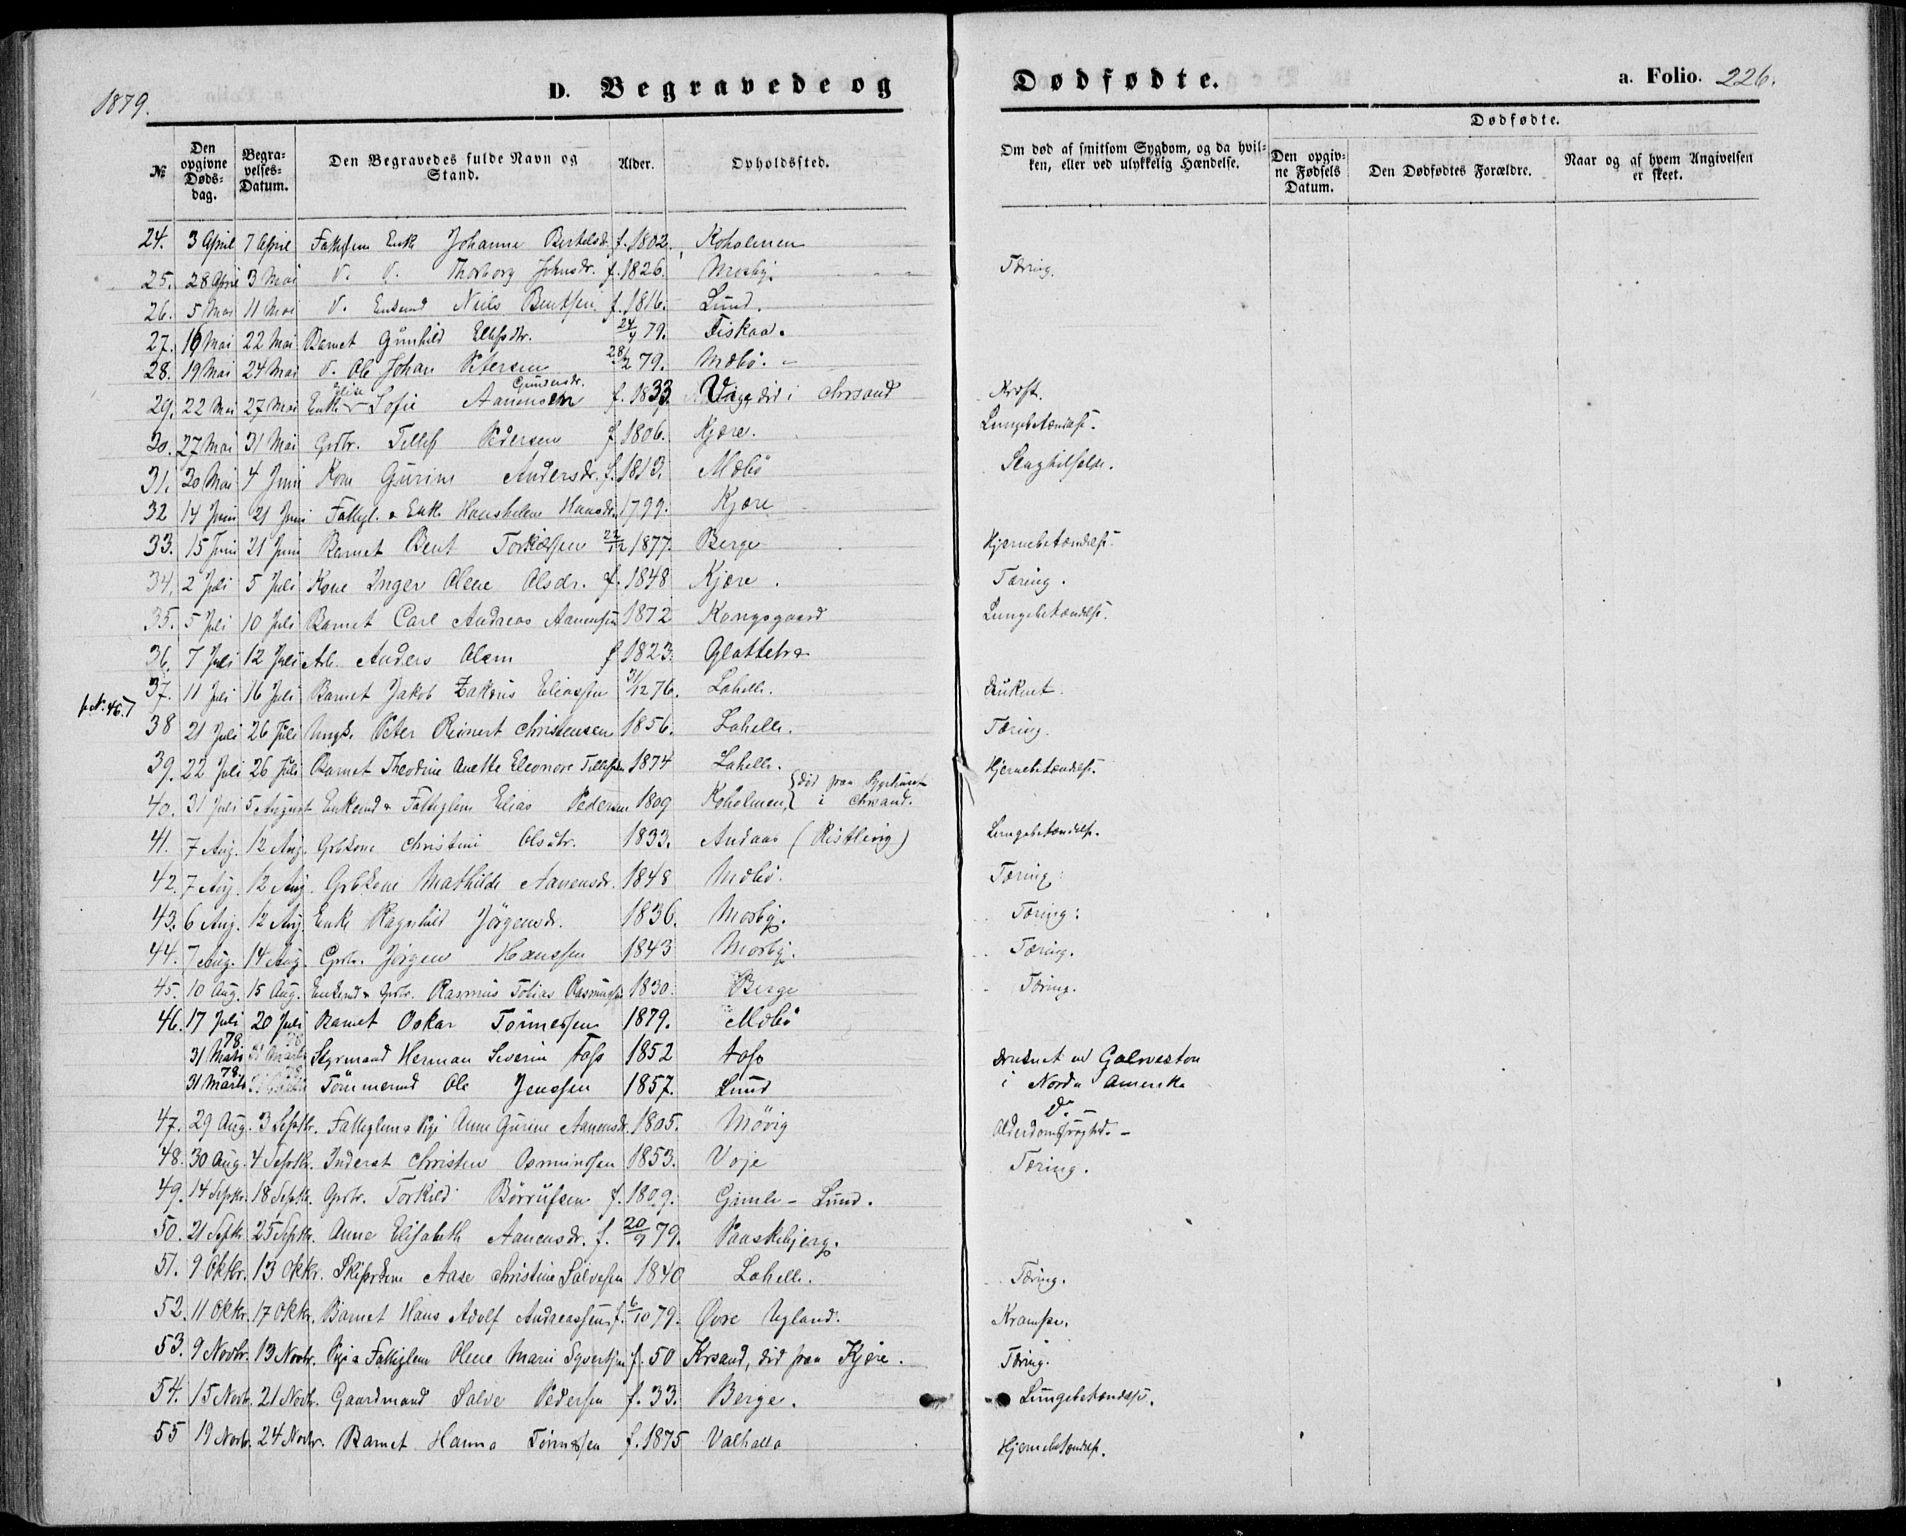 1879.
D. Begravede og Dødfødte.
a. Folio. 226.
№
Den opgivne Dødsdag.
Begravelses-Datum.
Den Begravedes fulde Navn og Stand.
Alder.
Opholdssted.
Om død af smitsom Sygdom, og da hvilken, eller ved ulykkelig Hændelse.
Dødfødte.
Den opgivne Fødsels Datum.
Den Dødfødtes Forældre.
Naar og af hvem Angivelsen er skeet.
24. 3 April 7 April Fattiglem Enke Johanne Bertelsdr. f. 1802. Koholmen
25. 28 April 3 Mai Thorborg Johnsdr. f. 1826. Mosby. Tæring.
26. 5 Mai 11 Mai Enkemd Neils Bentsen f. 1816. Lund.
27. 16 Mai 22 Mai Barnet Gunhild 24/4 79. Fiskaa.
28. 19 Mai 24 Mai Ole Johan Petersen 28/2 79. Mæbø.
29. 22 Mai 27 Mai Enke Elise Sofie Aanensen Gunensdr. f. 1833. Vige, død i Chrsand Kræft.
30. 27 Mai 31 Mai Grdbr. Tellef Pedersen f 1806. Kjære. Lungebetændelse.
31. 30 Mai 4 Juni Kone Gurine Andersdr. f. 1813. Mæbø Slagtilfælde.
32 14 Juni 21 Juni Fattigl. & Enke Hanshelene Hansdr. 1799. Kjære
33. 15 Juni 21 Juni Barnet Bent Torkelsen 22/12 1877. Berge Hjernebetændelse.
34. 2 Juli 5 Juli Kone Inger Olene Olsdr. f. 1848 Kjære. Tæring.
35. 5 Juli 10 Juli Barnet Carl Andreas Aanensen 1872 Kongsgaard Lungebetændelse.
36. 7 Juli 12 Juli Arb. Anders Olsen f 1823. Glattetræ
37. 11 Juli 16 Juli Barnet Jakob Zakrius Eliassen 31/12 76. Lahelle. Druknet.
f. No. 46.
38 21 Juli 26 Juli Ungk. Peter Reinert Christensen 1856. Lahelle. Tæring.
39. 22 Juli 26 Juli Barnet Theodine Anette Eleonore 1874 Lahelle. Hjernebetændelse.
40. 31 Juli 5 August Enkemd & Fattiglem Elias Pedersen 1809 Koholmen, død paa Sygehuset i Chrsand.
41. 7 Aug. 12 Aug. Grbkone Christine Olsdtr. 1833. Andaas (Ristlevig) Lungebetændelse.
42. 7 Aug. 12 Aug. Grbkone Mathilde Aanensdr. 1848 Mæbø. Tæring.
43. 6 Aug. 12 Aug. Enke Ragnhild Jørgensdr. 1836. Mosby. Tæring.
44. 7 Aug. 14 Aug. Grbr. Jørgen Hanssen 1843 Mosby. Tæring.
45. 10 Aug. 15 Aug. Enkemd & Grdbr. Rasmus Tobias Rasmussen 1830. Berge Tæring.
46. 17 Juli 20 Juli Barnet Oskar Tønnessen 1879. Mæbø
31 Marts 78. Styrmand Herman Severin Foss 1852 Foss druknet ved Galveston
31 Marts 78. Tømmermd Ole Jenssen 1857. Lund i Nord Amerika
47. 29 Aug. 3 Septbr. Fattiglem & Pige Anne Gurine Aanensdr. 1805. Møvig Alderdomssvaghed. –
48. 30 Aug. 4 Septbr. Inderst Christen Osmundsen 1853. Voje Tæring.
49. 14 Septbr. 18 Septbr. Grdbr. Torkild Børrufsen f. 1809. Gimle – Lund.
50. 21 Septbr. 25 Septbr. Anne Elisabeth Aanensdr. f. 20/9 79. Paaskebjerg.
51. 9 Oktbr. 13 Oktbr. Skipprkone Aase Christine Salvesen 1840 Lahelle. Tæring.
52. 11 Oktbr. 17 Oktbr. Barnet Hans Adolf Andreassen f. 6/10 79. Øvre Ugland. Krampe.
53. 9 Novbr. 13 Novbr. Pige & Fattiglem Olene Marie Syvertsen f. 50 Krsand, død paa Kjære. Tæring.
54. 15 Novbr. 21 Novbr. Gaardmand Salve Pedersen f. 33. Berge. Lungebetændelse.
55 19 Novbr. 24 Novbr. Barnet Hanna Tønnessen f. 1875 Valhalla Hjernebetændelse.